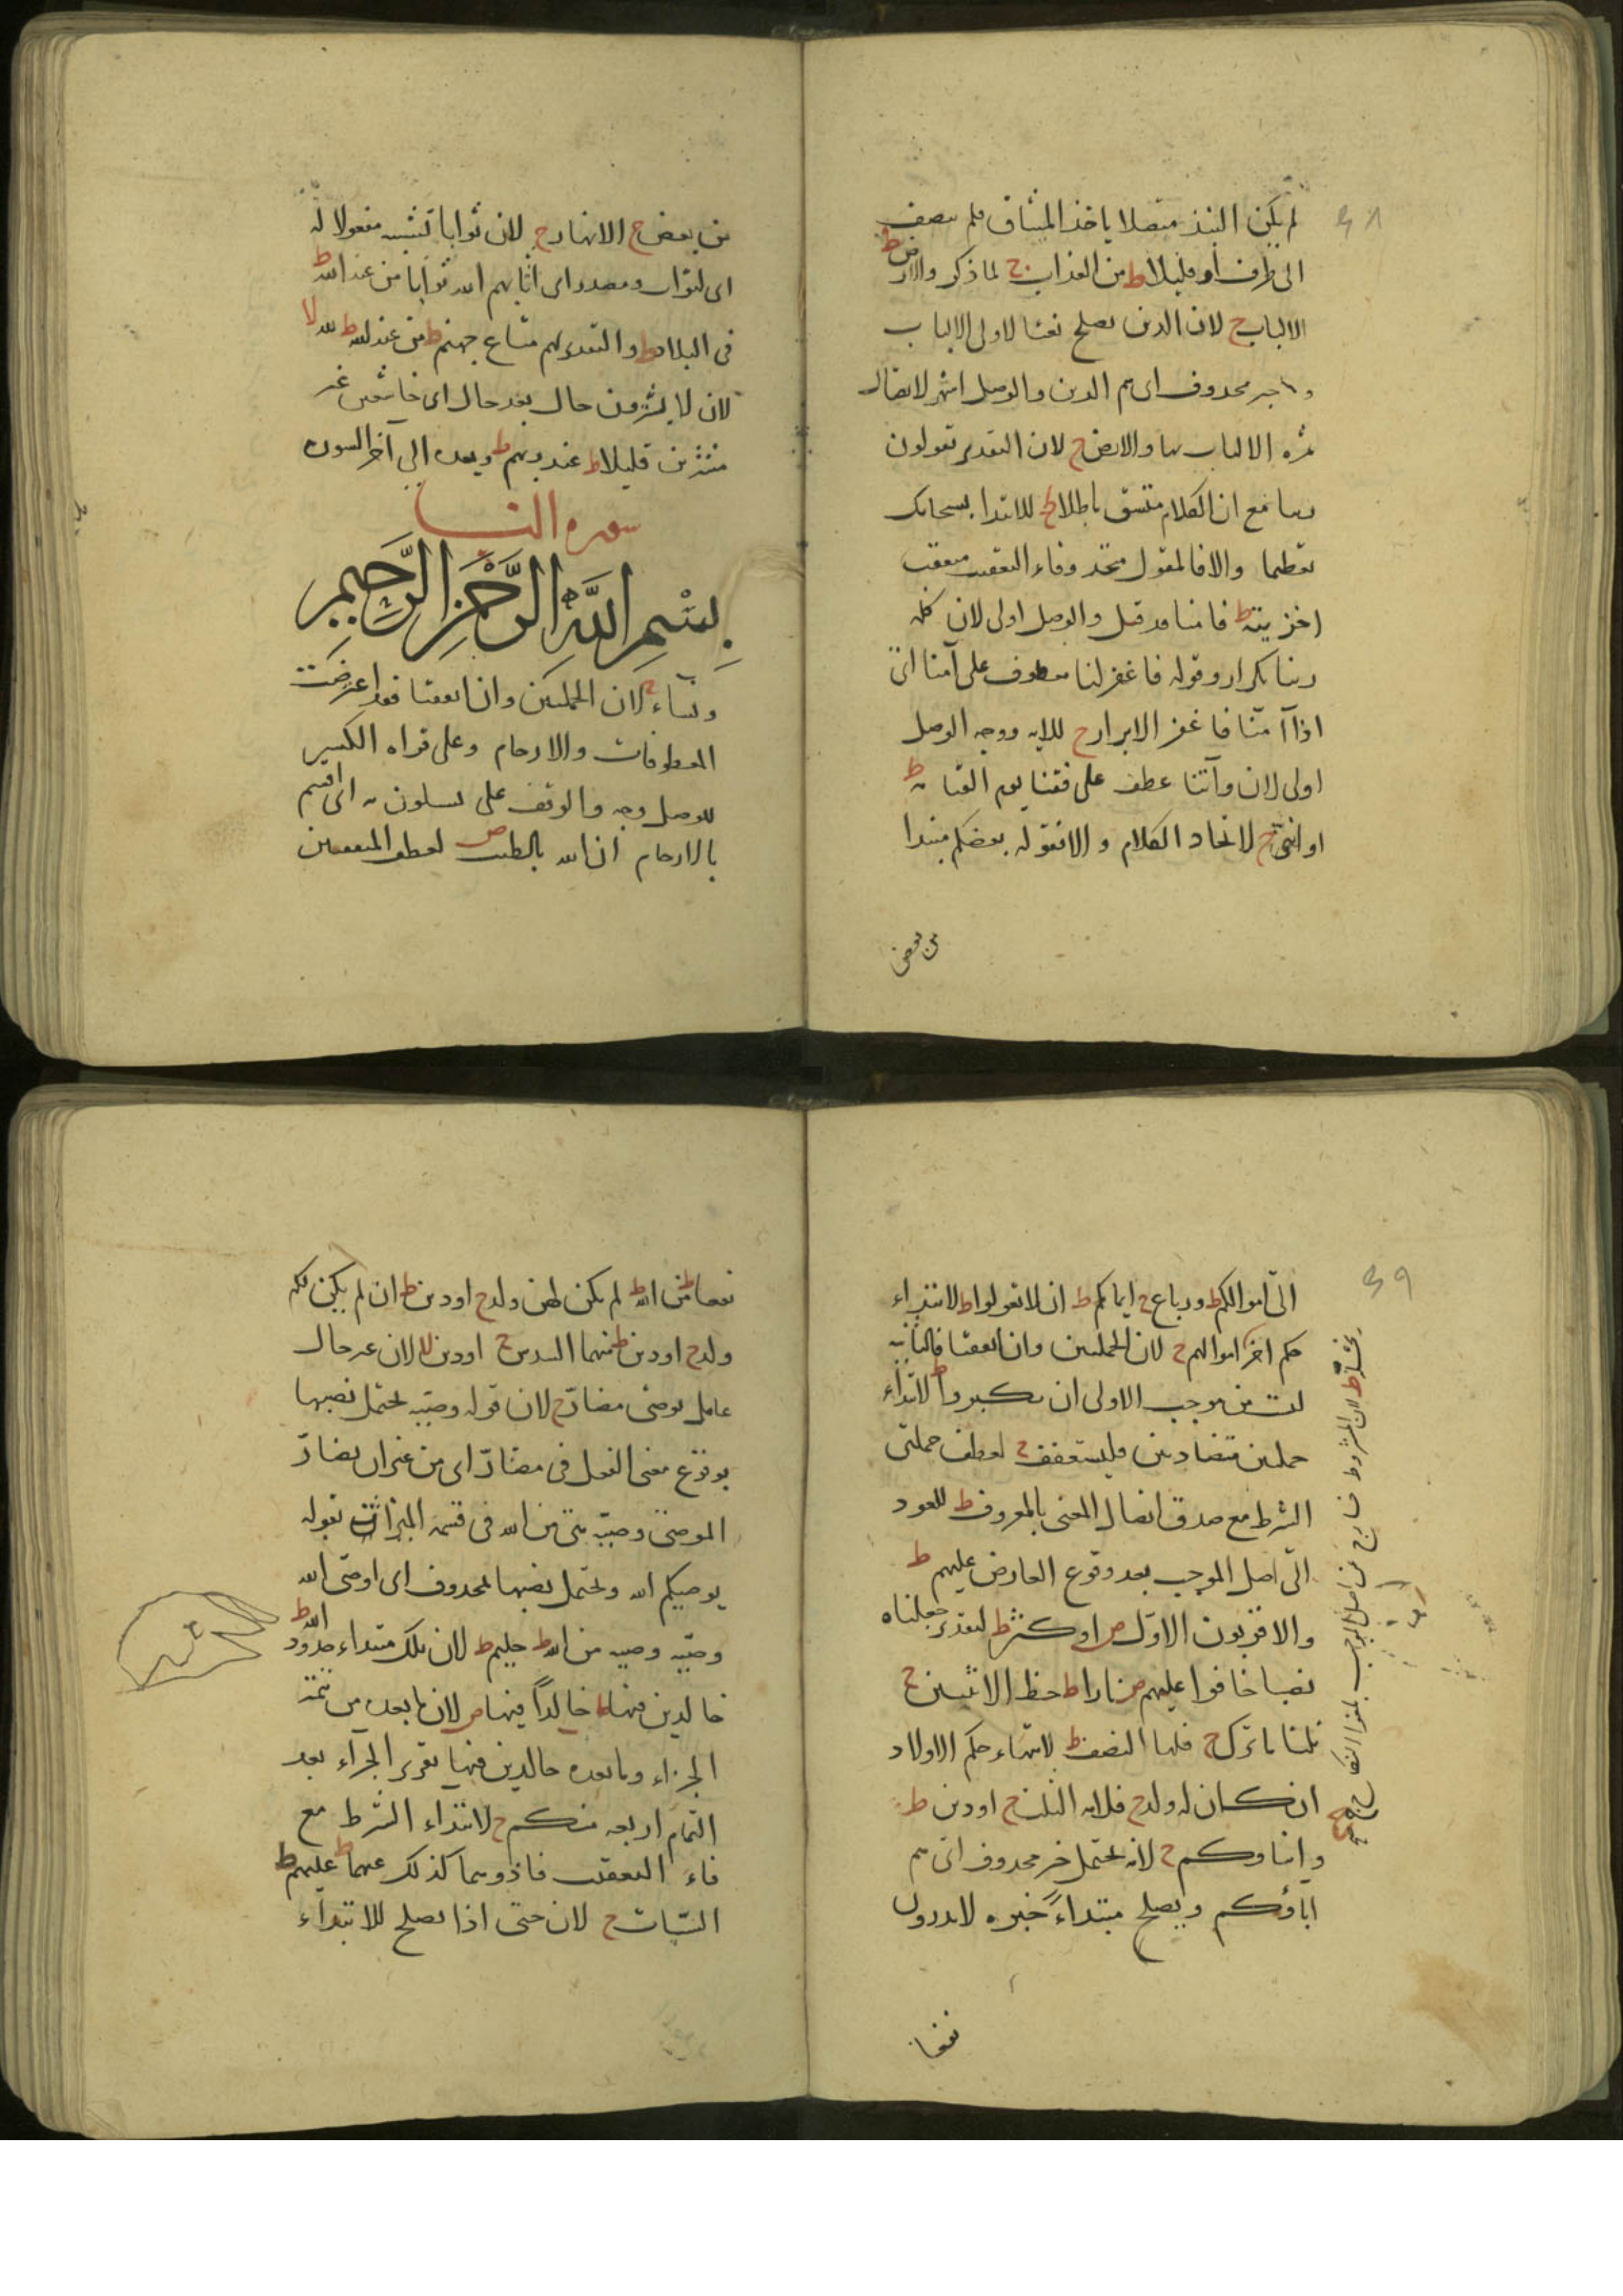 ٣٨
لم يكن النبذ متصلا ياخذ الميثاق فلم يتصف
الى ظرف او قليلا ط من العذاب ج لما ذكر والارض ط
الالباب ج لان الذين يصلح نعتا لاولى الالباب
محذوف اى هم الذين والوصل اشهر لاتصال
الالباب بها والارض ج لان التقدير تقولون
ربنا مع ان الكلام متسق باطلا ج للابتدا بسبحانك
تعظيما والا فالمقول متحد وفاء التعقيب معقب
اخزيته ط فامنا قد قيل والوصل اولى لان كلمه
ربنا تكرار وقوله فاغفر لنا معطوف على آمنا اى
اذا آمنا فاغفر الابرار ج للايه ووجه الوصل
اولى لان وآتنا عطف على فقنا يوم القيامة ط
او انثى ج لاتحاد الكلام و الا فقوله بعضكم مبتدا
من بعض
من بعض ج الانهار ج لان ثوابا مفعولا له
اى لثواب ومصدر اى اثابهم الله ثوابا من عند الله ط
فى البلاد ط والتقدير لهم متاع جهنم ط من عند الله ط لله لا
لان لا يشترون حال بعد حال اى خاشعين غير
مشترين قليلا ط عند ربهم ط وبعده الى آخر السوره
سوره النسا
بسم الله الرحمن الرحيم
ونساء ج لان الجملتين وان اتفقتا فقد اعترضت
المعطوفات والارحام وعلى قراه الكسر
للوصل وجه والوقف على تساءلون به اى اقسم
بالارحام ان الله بالطيب ص لعطف المتفقتين
٣٩
الى اموالكم ط ورباع ج ايمانكم ط ان لا تعولوا ط لابتداء
حكم آخر اموالهم ج لان الجملتين وان اتفقتا فالثانيه
ليست من موجب الاولى ان يكبروا ط لابتداء
جملتين متضادتين فليستعفف ج لعطف جملتى
الشرط مع صدق اتصال المعنى بالمعروف ط للعود
الى اصل الموجب بعد وقوع العارض عليهم ط
والاقربون الاول ص او كثر ط لتقدير جعلناه
نصيبا خافوا عليهم ص نارا ط حظ الانثيين ج
ثلثا ما ترك ج فلها النصف ط لانتهاء حكم الاولاد
ان كان له ولد ج فلامه الثلث ج او دين ط
وابناؤكم ج لانه يحتمل خبر محذوف اى هم
اباؤكم ويصلح مبتداء خبره لا تدرون
نفعا
نفعا ط من الله ط لم يكن لهن ولد ج او دين ط ان لم يكن لكم
ولد ج او دين ط منهما السدس ج او دين لا لان غير حال
عامل يوصى مضار ج لان قوله وصية يحتمل نصبها
بوقوع معنى الفعل فى مضار اى من غير ان يضار
الموصى وصية من الله فى قسمة الميراث بقوله
يوصيكم الله ويحتمل نصبها لمحذوف اى اوصى الله
وصية وصيه من الله ط حليم ط لان تلك مبتداء حدود الله ط
خالدين فيها ط خالدا فيها ص لان ما بعده من تتمة
الجزاء وما بعده خالدين فيها تقرير الجزاء بعد
التمام اربعه منكم ج لابتداء الشرط مع
فاء التعقيب فاذوهما كذلك عنهما ط عليهم ط
السيات ج لان حتى اذا يصلح للابتداء